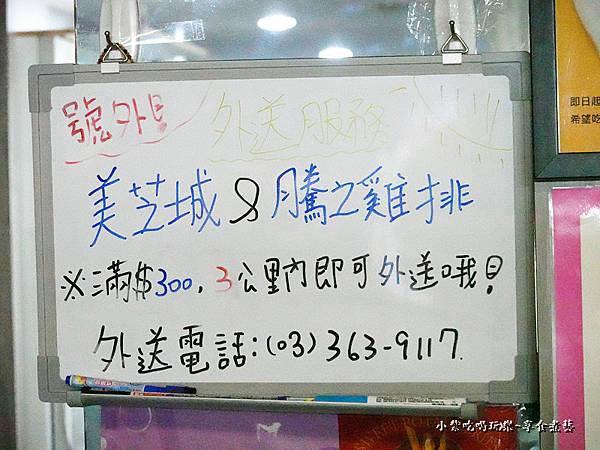 號外！ 外送服務
美芝城 & 騰之雞排
※滿$300，3公里內即可外送哦！
外送電話：(03) 363-9117
即日起
希望吃
小紫吃喝玩樂~穿衣煮藝